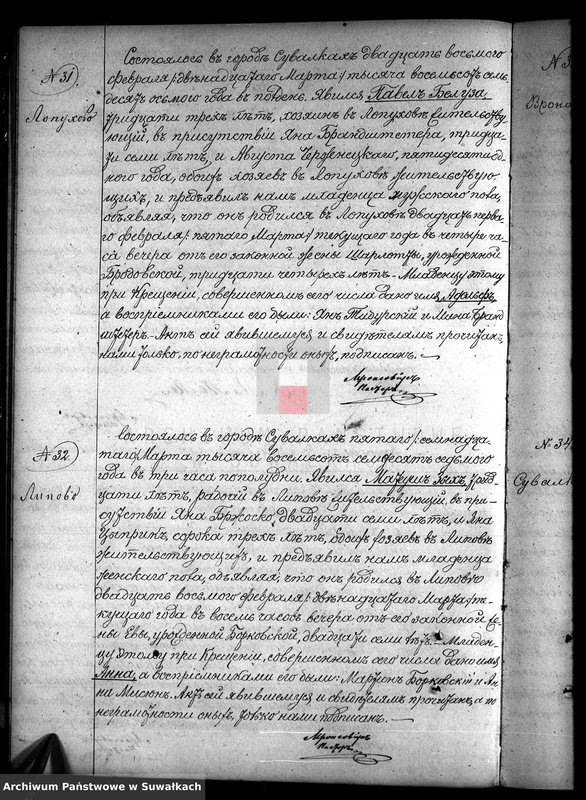 № 31
Лопухово
Состоялось въ городѣ Сувалкахъ двадцать восьмого
февраля /:двѣнадцатаго Марта:/ тысяча восемьсотъ семь
десятъ осьмого года въ полдень. Явился Павелъ Белуза,
тридцати трехъ лѣтъ, хозяинъ въ Лопуховѣ жительству
ющій, въ присутствіи Яна Брандштетера, тридца-
ти семи лѣтъ, и Августа пятидесяти од-
ного года, обоихъ хозяевъ въ Лопуховѣ жительствую-
щихъ, и предъявилъ намъ младенца мужскаго пола,
объявляя, что онъ родился въ Лопуховѣ двадцать перва
го февраля /:пятаго Марта:/ текущаго года въ четыре ча-
са вечера отъ его законной жены Шарлотты, урожденной
Бродовской, тридцати четырехъ лѣтъ. – Младенцу этому
при Крещеніи, совершенномъ сего числа дано имя Адольфъ,
а воспріемниками его были: Янъ и Мина Бранд
штетеръ. – Актъ сей явившемуся и свидѣтелямъ прочитанъ,
нами только, по неграмотности оныхъ, подписанъ. —
Пасторъ
№ 32
Липово
Состоялось въ городѣ Сувалкахъ пятаго /:семнадца-
таго:/ Марта тысяча восемьсотъ семдесятъ седьмого
года въ три часа пополудни. Явился Матеушъ
цати лѣтъ, рабочій въ Липовѣ жительствующій, въ при-
сутствіи Яна Бржоско, двадцати семи лѣтъ, и Яна
сорока трехъ лѣтъ, обоихъ хозяевъ въ Липовѣ
жительствующихъ, и предъявилъ намъ младенца
женскаго пола, объявляя, что онъ родился въ Липово
двадцать восьмого февраля /:двѣнадцатаго Марта:/ те-
кущаго года въ восемь часовъ вечера отъ его законной же-
ны Евы, урожденной Борковской, двадцати семи лѣтъ. – Младен-
цу этому при Крещеніи, совершенномъ сего числа дано имя
Анна, а воспріемниками его были: Мартинъ Борковскій и Ан-
на Мисюнъ. Актъ сей явившемуся и свидѣтелямъ прочитанъ, а по
неграмотности оныхъ, только нами подписанъ. —
Пасторъ
№ 3
Врона
№ 34
Сувал
Archiwum Państwowe w Suwałkach